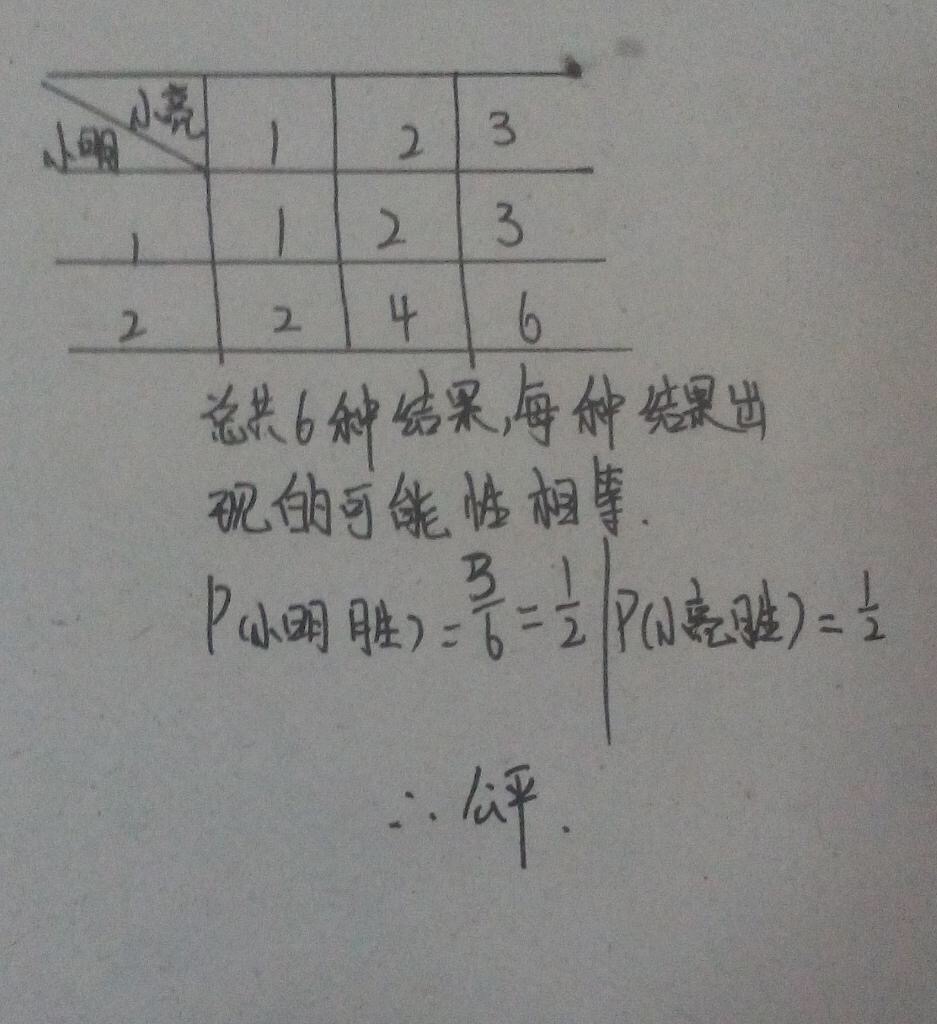 小亮 1 2 3
小明
1 1 2 3
2 2 4 6
总共6种结果,每种结果出
现的可能性相等.
P(小明胜)=3/6=1/2 | P(小亮胜)=1/2
∴公平.